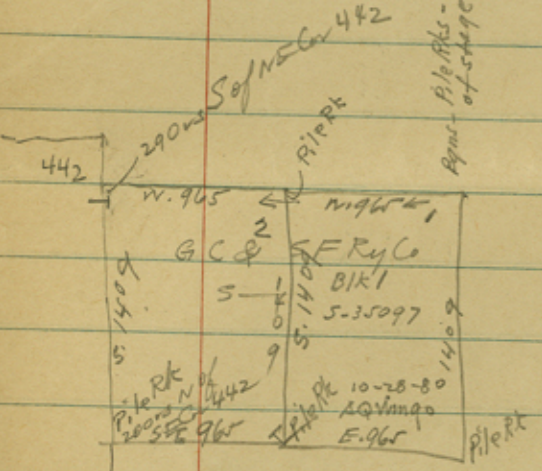 290vs S of NE Cor 442
Pile Rk
Bgns - Pile Rks -
of stage
442
W. 965
W. 965
1
2
G C & S F Ry Co
Blk 1
S-35097
S 1409
S - 1409
S. 1409
1409
Pile Rk
200vs N of
SE Cor 442
965
Pile Rk
10-28-80
E. 965
Pile Rk